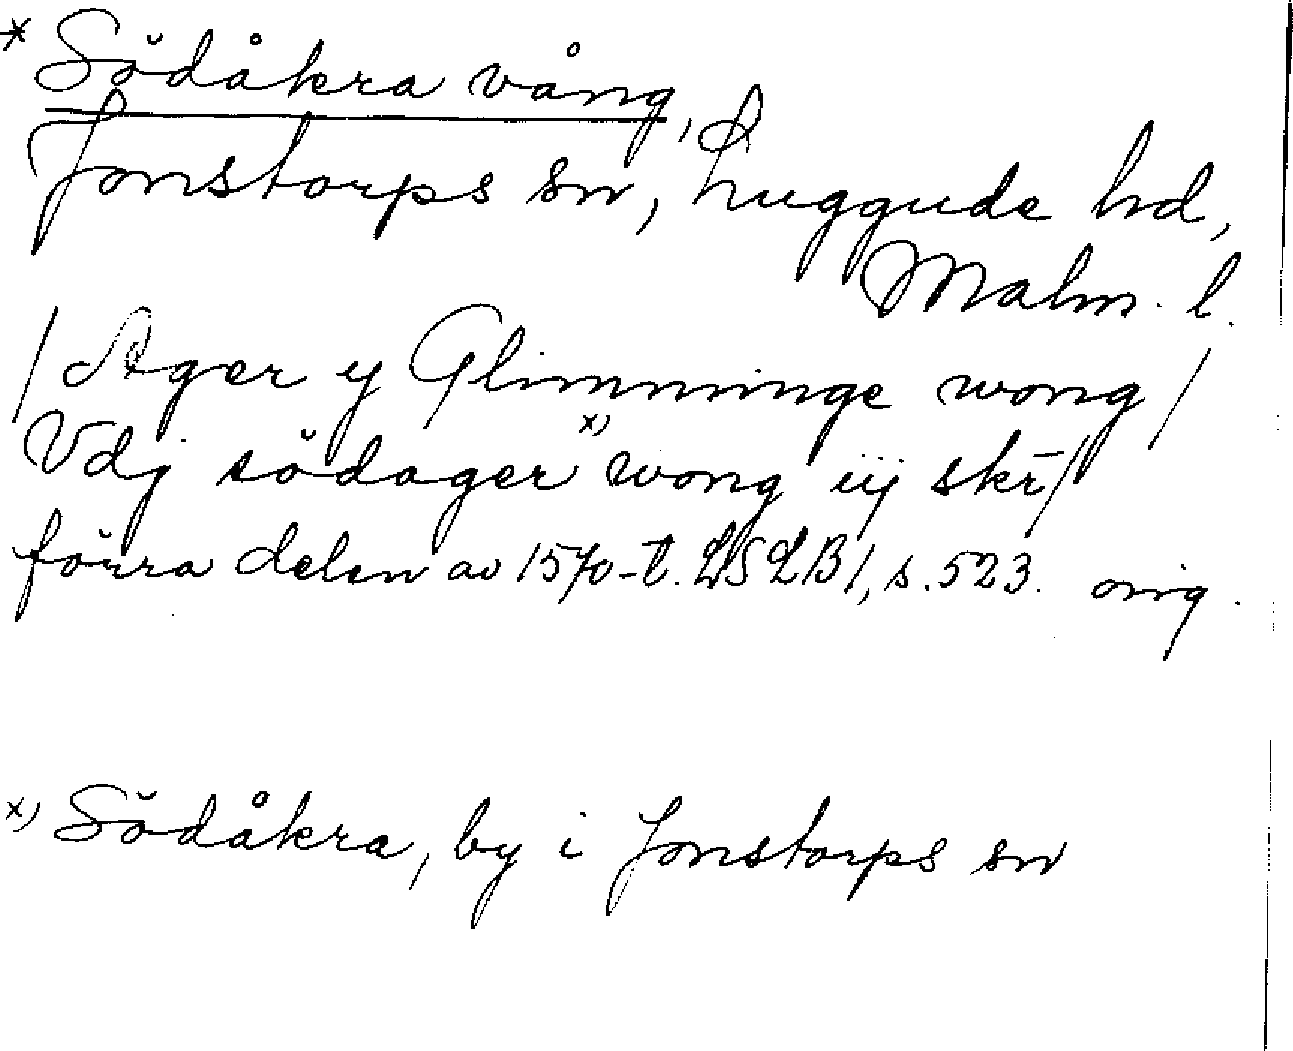 * Södåkra vång,
Jonstorps sn, Luggude hd,
Malm. l.
/ Ager y Glimminge wong /
Vdj södager x) wong iij skr̄ /
förra delen av 1570-t. LSLB 1, s. 523. orig.
x) Södåkra, by i Jonstorps sn